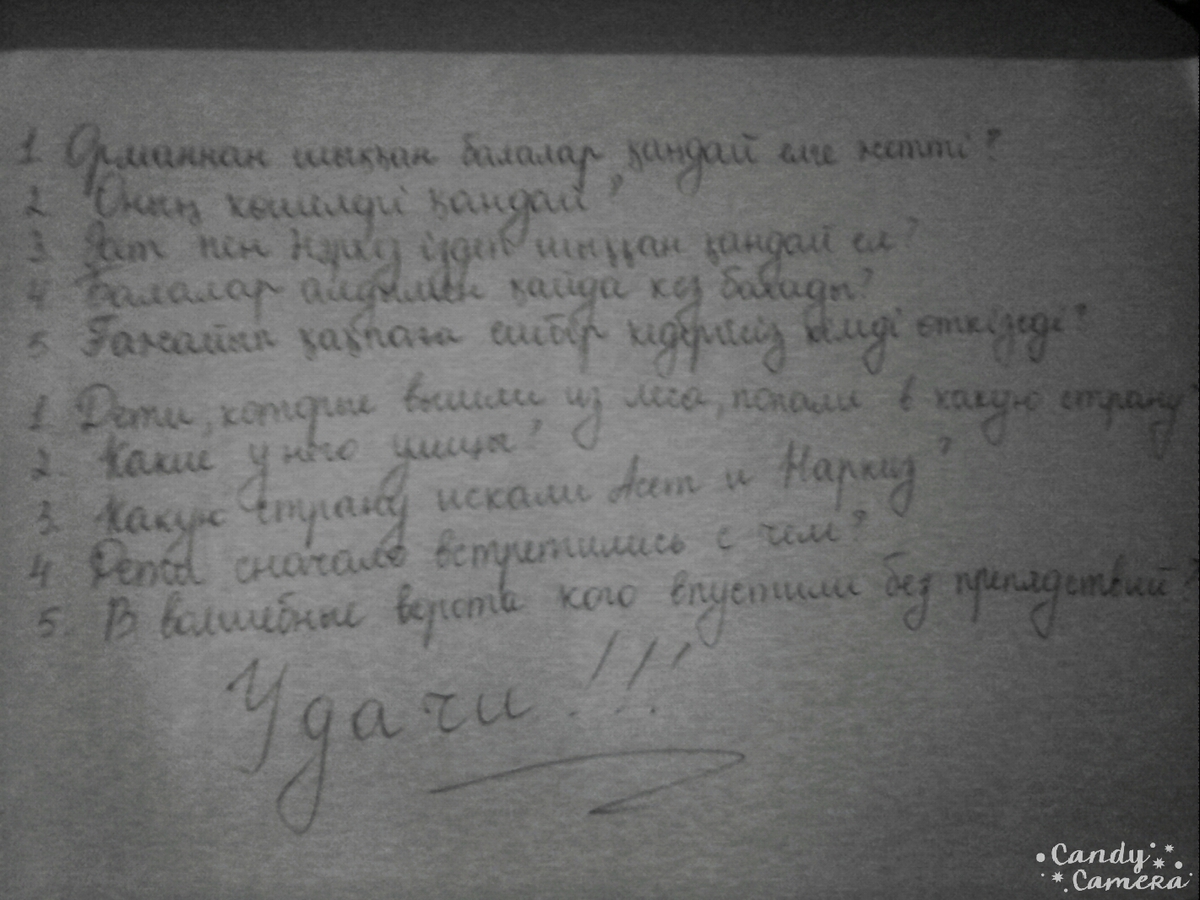 1. Орманнан шыққан балалар қандай елге жетті?
2. Оның көшелді қандай?
3. пен Нәркез іздеп шыққан қандай ел?
4. Балалар алдымен қайда кез болады?
5. Ғажайып қақпаға ешбір кідеріссіз кімді өткізеді?
1. Дети, которые вышли из леса, попали в какую страну?
2. Какие у него улицы?
3. Какую страну искали Асет и Наркиз?
4. Дети сначало встретились с чем?
5. В волшебные ворота кого впустили без препядствий?
Удачи!!!
Candy
Camera